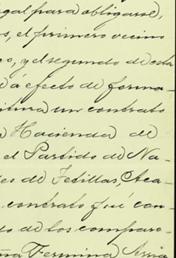 gal para obligarse,
s, el primero vecino
o, y el segundo de esta
á efecto de forma-
itura un contrato
a Hacienda de
el Partido de Na-
es de Tetillas, Aca-
contrato qué con-
o de los compare-
Fermina